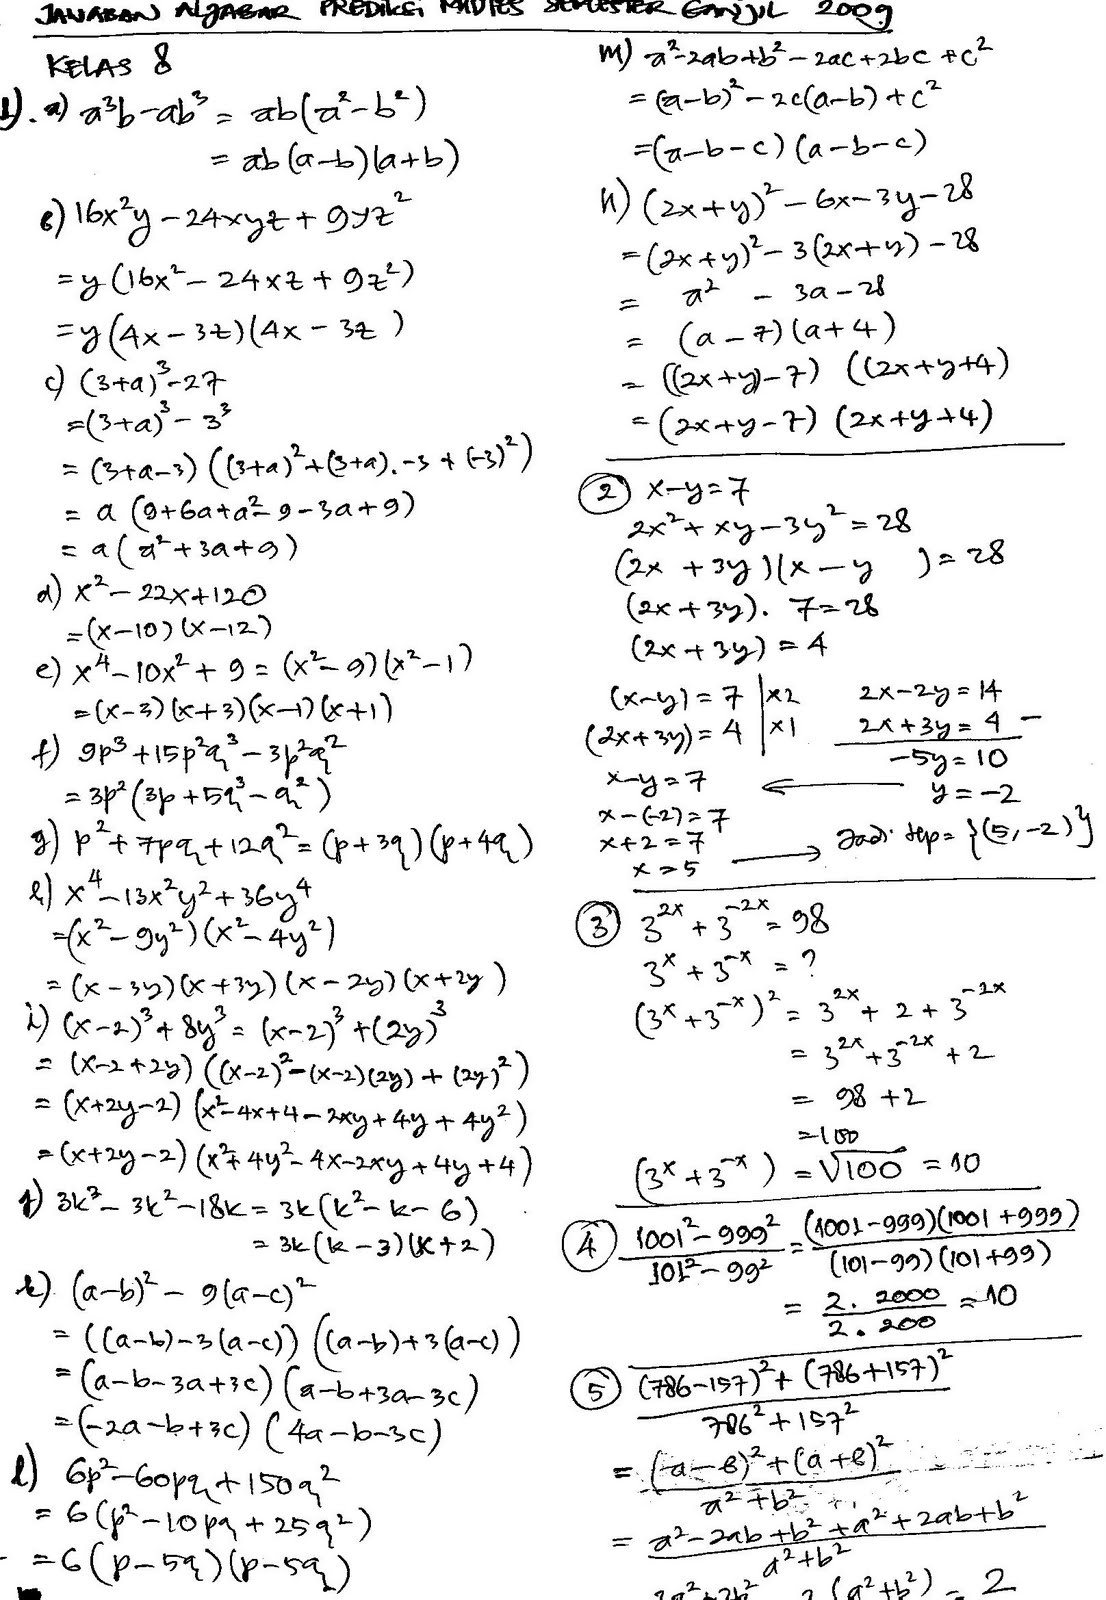 JAWABAN ALJABAR PREDIKSI MIDTES SEMESTER GANJIL 2009
KELAS 8
1). a) a³b - ab³ = ab(a² - b²)
= ab(a-b)(a+b)
b) 16x²y - 24xyz + 9yz²
= y(16x² - 24xz + 9z²)
= y(4x - 3z)(4x - 3z)
c) (3+a)³ - 27
= (3+a)³ - 3³
= (3+a-3) ((3+a)² + (3+a). -3 + (-3)²)
= a (9+6a+a² - 9 - 3a + 9)
= a (a² + 3a + 9)
d) x² - 22x + 120
= (x-10)(x-12)
e) x⁴ - 10x² + 9 = (x² - 9)(x² - 1)
= (x-3)(x+3)(x-1)(x+1)
f) 9p³ + 15p²q³ - 3p²q²
= 3p²(3p + 5q³ - q²)
g) p² + 7pq + 12q² = (p+3q)(p+4q)
h) x⁴ - 13x²y² + 36y⁴
= (x² - 9y²)(x² - 4y²)
= (x-3y)(x+3y)(x-2y)(x+2y)
i) (x-2)³ + 8y³ = (x-2)³ + (2y)³
= (x-2+2y) ((x-2)² - (x-2)(2y) + (2y)²)
= (x+2y-2) (x² - 4x + 4 - 2xy + 4y + 4y²)
= (x+2y-2) (x² + 4y² - 4x - 2xy + 4y + 4)
j) 3k³ - 3k² - 18k = 3k(k² - k - 6)
= 3k(k-3)(k+2)
k) (a-b)² - 9(a-c)²
= ((a-b) - 3(a-c)) ((a-b) + 3(a-c))
= (a-b-3a+3c) (a-b+3a-3c)
= (-2a-b+3c) (4a-b-3c)
l) 6p² - 60pq + 150q²
= 6(p² - 10pq + 25q²)
= 6(p-5q)(p-5q)
m) a² - 2ab + b² - 2ac + 2bc + c²
= (a-b)² - 2c(a-b) + c²
= (a-b-c)(a-b-c)
n) (2x+y)² - 6x - 3y - 28
= (2x+y)² - 3(2x+y) - 28
= a² - 3a - 28
= (a-7)(a+4)
= ((2x+y)-7) ((2x+y+4)
= (2x+y-7) (2x+y+4)
2 x-y=7
2x² + xy - 3y² = 28
(2x + 3y)(x - y ) = 28
(2x+3y). 7 = 28
(2x+3y) = 4
(x-y) = 7 |x2 2x-2y = 14
(2x+3y) = 4 |x1 2x+3y = 4 -
-5y = 10
x-y = 7 ← y = -2
x-(-2) = 7
x+2 = 7
x = 5 → Jadi Hp = {(5,-2)}
3 3²ˣ + 3⁻²ˣ = 98
3ˣ + 3⁻ˣ = ?
(3ˣ + 3⁻ˣ)² = 3²ˣ + 2 + 3⁻²ˣ
= 3²ˣ + 3⁻²ˣ + 2
= 98 + 2
= 100
(3ˣ + 3⁻ˣ) = √100 = 10
4 1001² - 999² / 101² - 99² = (1001-999)(1001+999) / (101-99)(101+99)
= 2. 2000 / 2. 200 = 10
5 (786-157)² + (786+157)² / 786² + 157²
= (a-b)² + (a+b)² / a² + b²
= a² - 2ab + b² + a² + 2ab + b² / a² + b²
2a² + 2b² 2(a² + b²) = 2